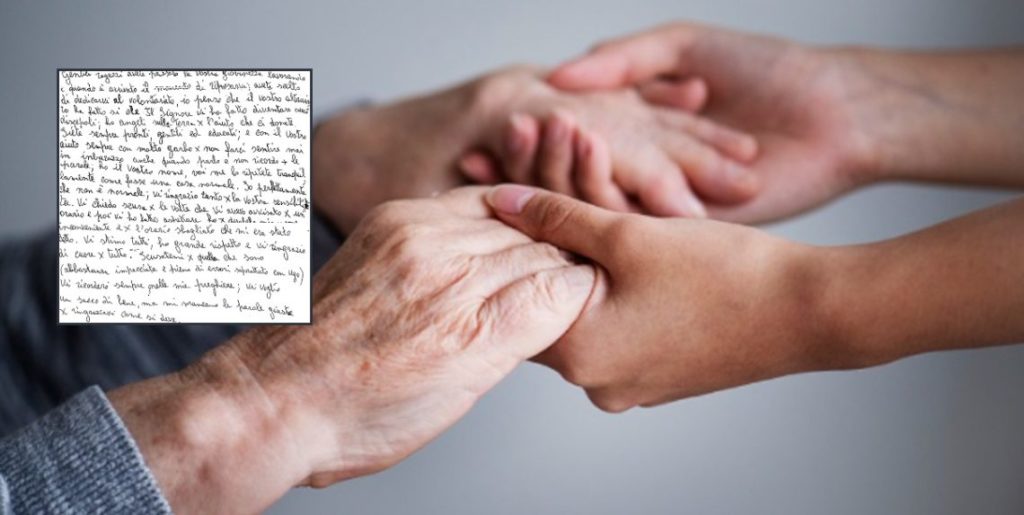 Gentili ragazzi avete passato la vostra giovinezza lavorando
e quando è arrivato il momento di riposarvi; avete scelto
di dedicarvi al volontariato, io penso che il vostro altruis
mo ha fatto sì che Il Signore vi ha fatto diventare suoi
discepoli; ho angeli sulla Terra x l'aiuto che ci donate
Siete sempre pronti, gentili ed educati; e con il vostro
aiuto sempre con molto garbo x non farci sentire mai
in imbarazzo anche quando parlo e non ricordo o le
parole, ho il vostro nome, voi me lo ripetete tranquil
lamente come fosse una cosa normale. So perfettamente
che non è normale; vi ringrazio tanto x la vostra sensibili
tà. Vi chiedo scusa x le volte che vi avevo avvisato x un
orario e poi vi ho fatto aspettare ho x qualche
inconveniente e x l'orario sbagliato che mi era stato
detto. Vi stimo tutti, ho grande rispetto e vi ringrazio
di cuore x tutto. Scusatemi x quella che sono
(abbastanza impacciata e piena di errori soprattutto con
Vi ricorderò sempre nelle mie preghiere; vi voglio
un sacco di bene, ma mi mancano le parole giuste
x ringraziarvi come si deve.